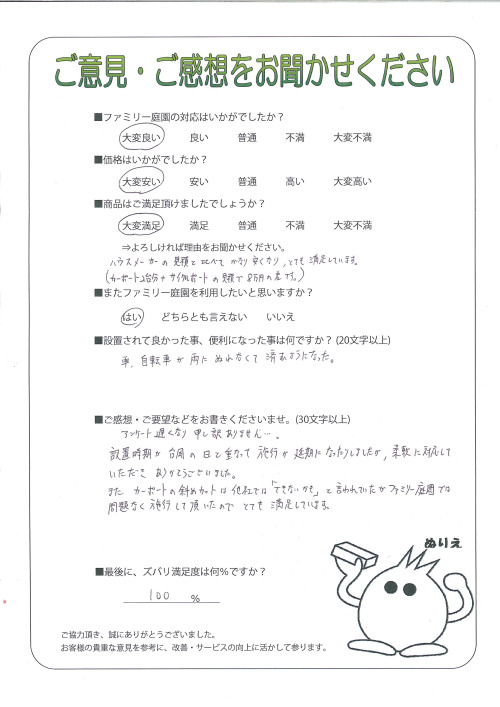 ご意見・ご感想をお聞かせください
■ファミリー庭園の対応はいかがでしたか？
大変良い 良い 普通 不満 大変不満
■価格はいかがでしたか？
大変安い 安い 普通 高い 大変高い
■商品はご満足頂けましたでしょうか？
大変満足 満足 普通 不満 大変不満
⇒よろしければ理由をお聞かせください。
ハウスメーカーの見積と比べて かなり安くなり、とても満足しています。
(カーポート2台分+サイクルポートの見積で8万円の差です。)
■またファミリー庭園を利用したいと思いますか？
はい どちらとも言えない いいえ
■設置されて良かった事、便利になった事は何ですか？(20文字以上)
車、自転車が雨にぬれなくて済むようになった。
■ご感想・ご要望などをお書きくださいませ。(30文字以上)
アンケート遅くなり申し訳ありません…。
設置時期が台風の日と重なって施行が延期になったりしましたが、柔軟に対応して
いただき ありがとうございました。
また カーポートの斜めカットは他社では「できないかも」と言われていたがファミリー庭園では
問題なく施行して頂いたので とても満足しています。
ぬりえ
■最後に、ズバリ満足度は何％ですか？
100 ％
ご協力頂き、誠にありがとうございました。
お客様の貴重な意見を参考に、改善・サービスの向上に活かして参ります。